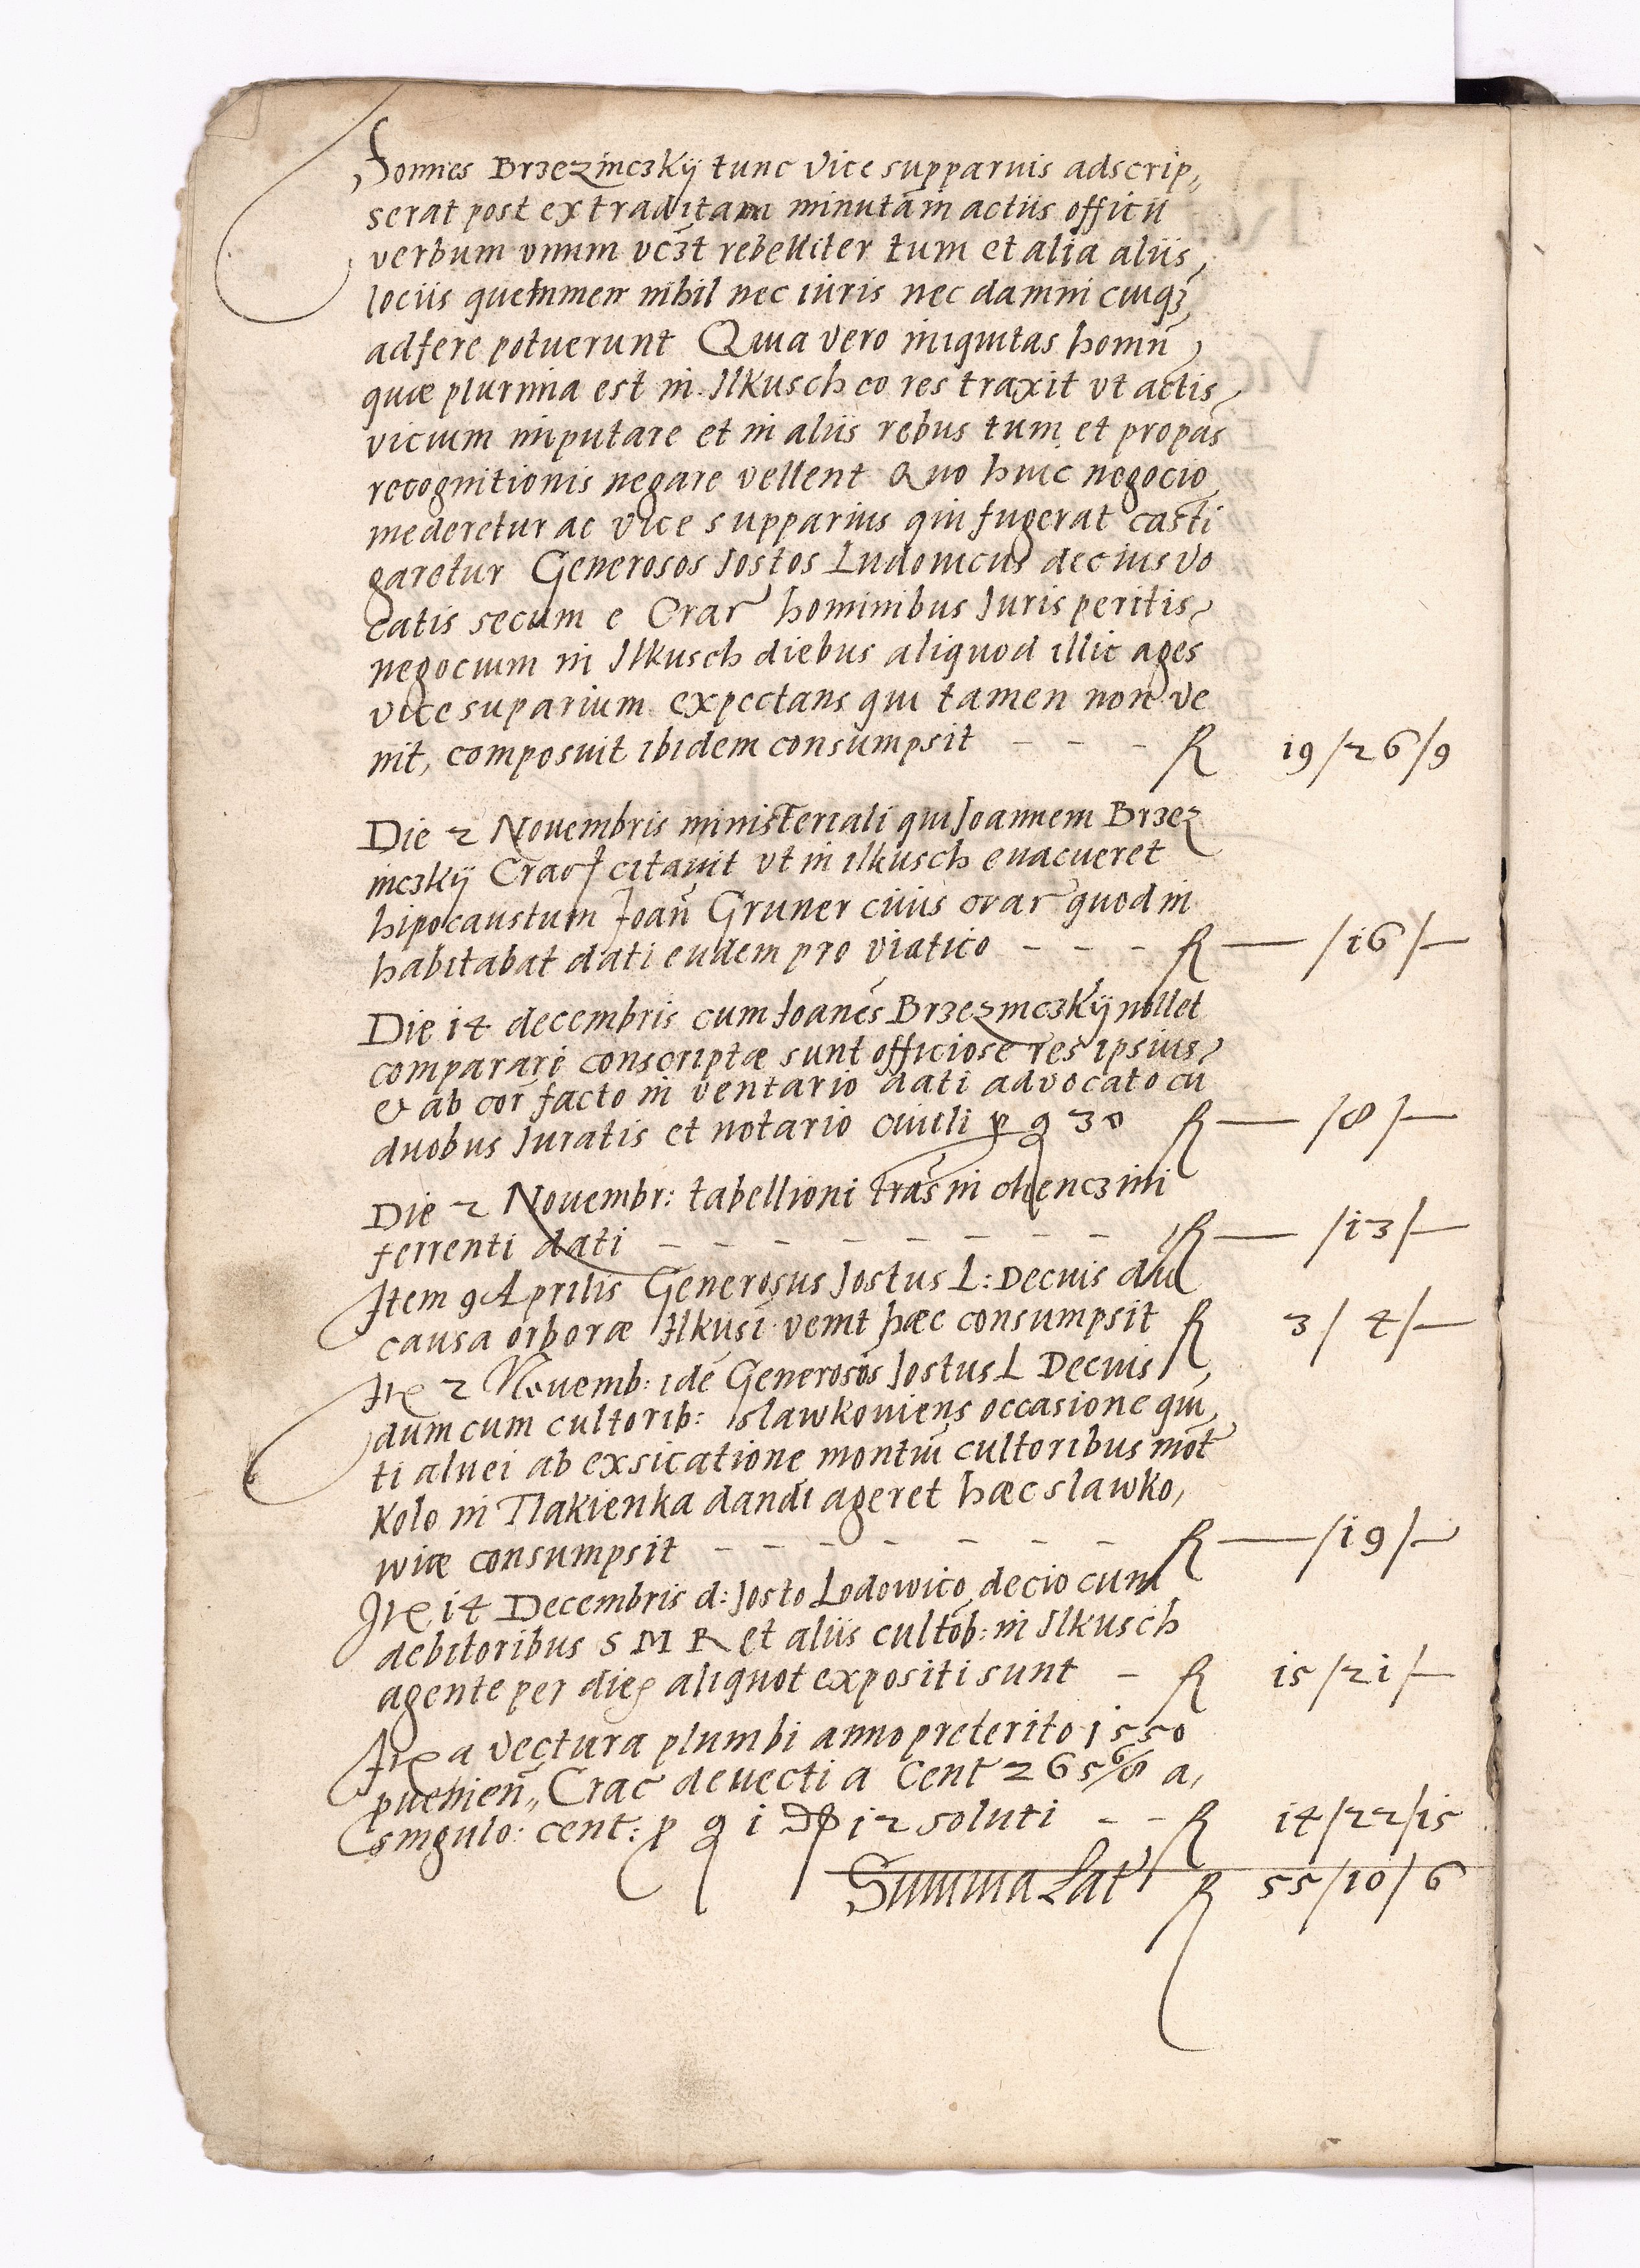 Joannes Brzezinczkÿ tunc vice supparius adscrip„
serat post extraditam minutam actiis officii
verbum vnum vcȝt rebelliter tum et alia aliis,
lociis quetnmen nihil nec iuris nec damni cuiqȝ
adfere potuerunt Quia vero iniquitas homin̄
quæ plurima est in Ilkusch eo res traxit vt actis
vicium imputare et in aliis rebus tum et propas
recognitionis negare vellent Quo huic negocio
mederetur ac vice supparius qui fugerat casti
garetur Generosos Jostos Ludouicus decius vo
catis secum e Crac hominibus Iuris peritis
negocium in Ilkusch diebus aliquod illic ages
vice suparium expectans qui tamen non ve
nit, composuit ibidem consumpsit - - - R 19/26/9
Die 2 Nouembris ministeriali qui Joannem Brzez
inczkÿ Crac citauit vt in ilkusch euacueret
hipocaustum Joan̄ Gruner ciuis crac quod in
habitabat dati eudem pro viatico - - - R — /16/—
Die 14 decembris cum Joanēs Brzezinczkÿ nollet
comparare conscriptæ sunt officiose res ipsius
& ab cor facto in ventario dati advocato cu
duobus Iuratis et notario ciuili p g 30 R — /8/—
Die 2 Nouembr: tabellioni tras in chenczini
ferrenti dati - - - - - - - - - R — /13/—
Item 9 Aprilis Generosus Jostus L: Decius du
causa orboræ Ilkusi venit hæc consumpsit R 3/4/—
Itē 2 Nouemb: idē Generosos Jostus L Decius,
dum cum cultorib: slawkouiens occasione qui,
ti aluei ab exsicatione montiū cultoribus mōt
kolo in Tlakienka dandi ageret hæc slawko,
wiæ consumpsit - - - - - - - - R — /19/—
Itē 14 Decembris d: Josto Lodowico decio cum
debitoribus S M R et aliis cultōb: in Ilkusch
agente per dies aliquot expositi sunt - R 15/21/—
Itē a vectura plumbi anno preterito 1550
Crac deuecti a Cent 265 6/8 a,
singulo: cent: p g 1 12 soluti - - R 14/22/15
Summa Lat R 55/10/6